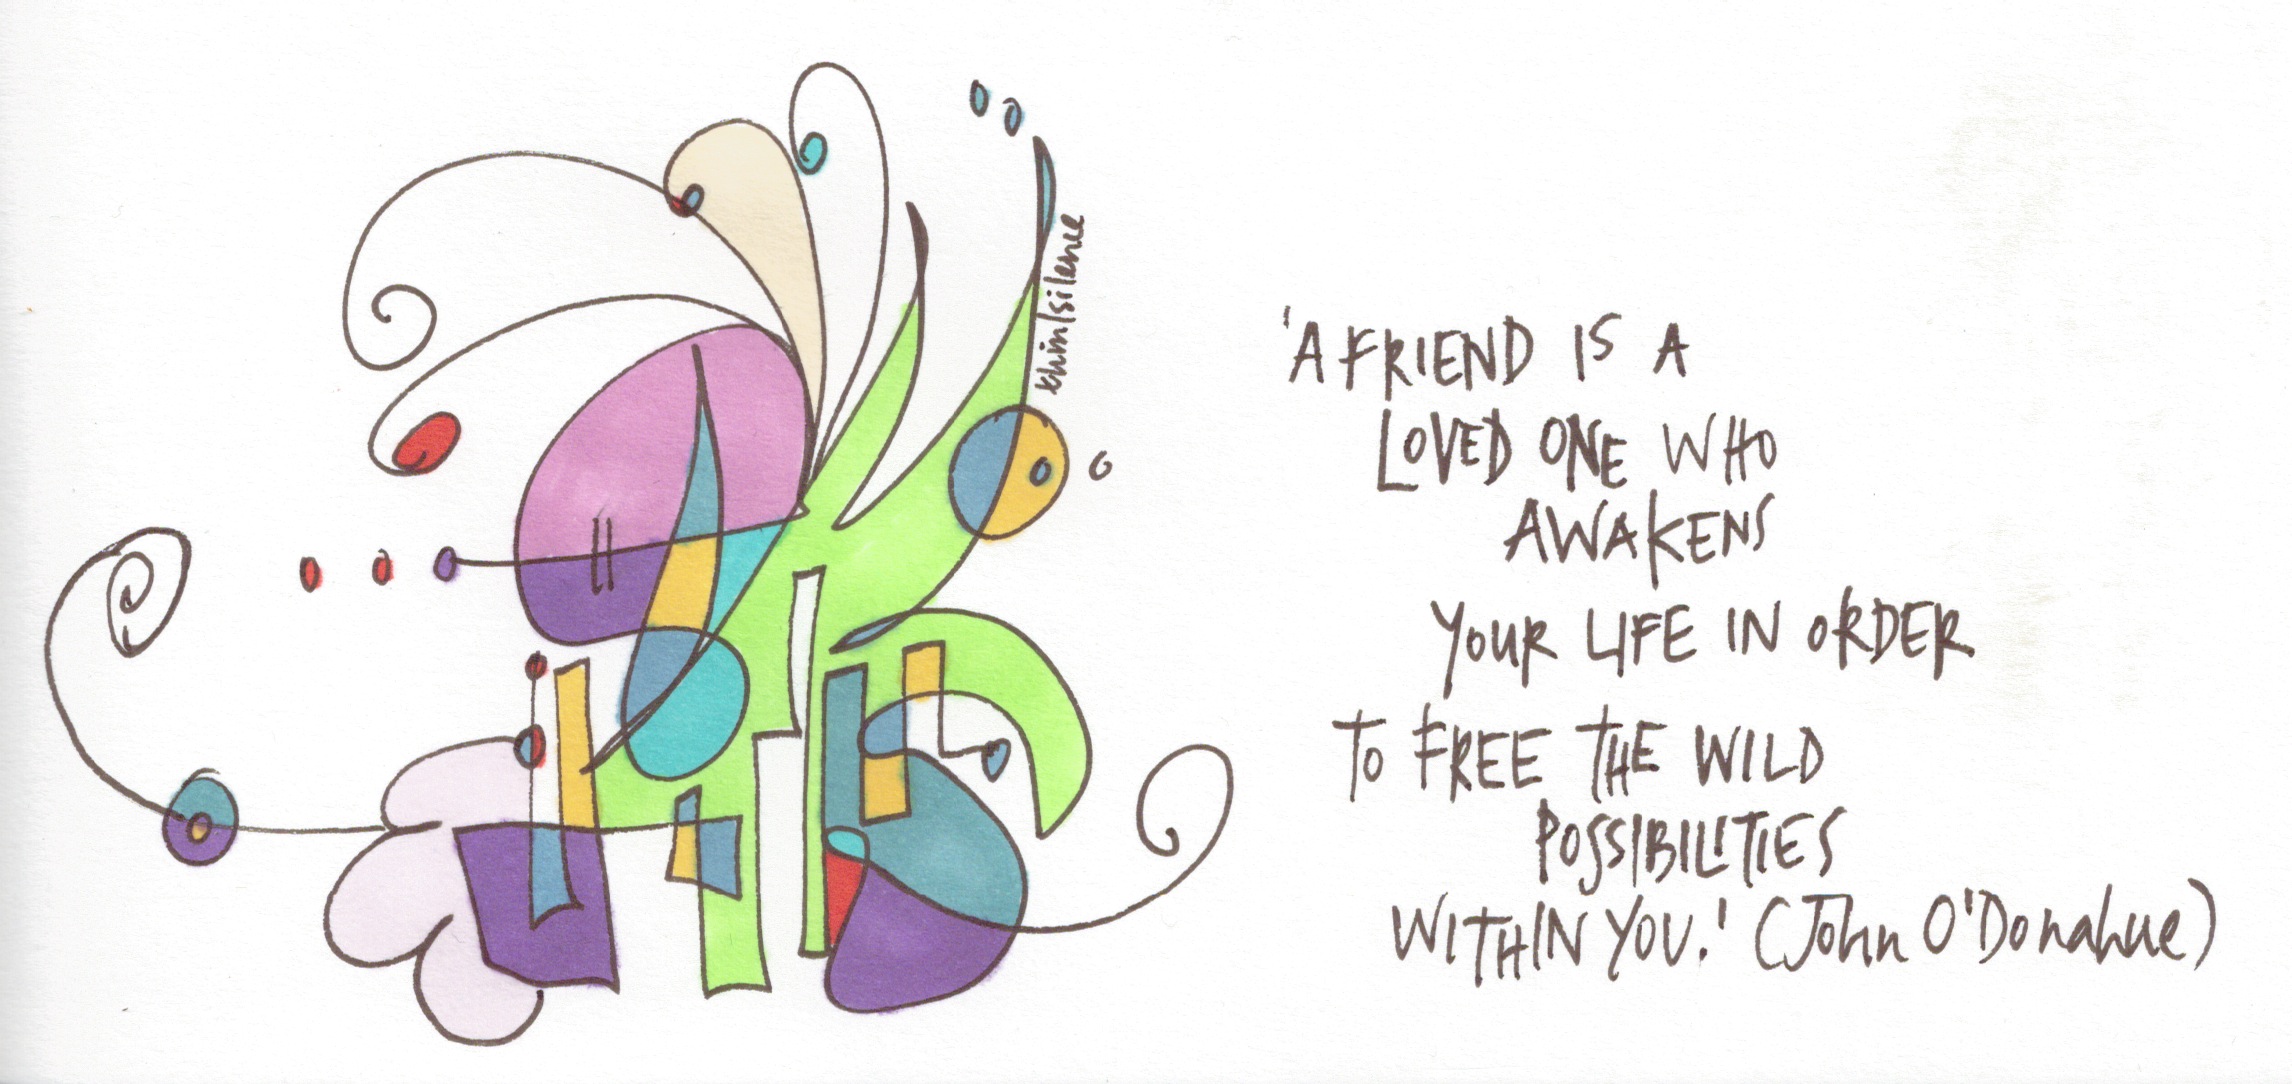 'A FRIEND IS A
LOVED ONE WHO
AWAKENS
YOUR LIFE IN ORDER
TO FREE THE WILD
POSSIBILITIES
WITHIN YOU.' (John O'Donahue)